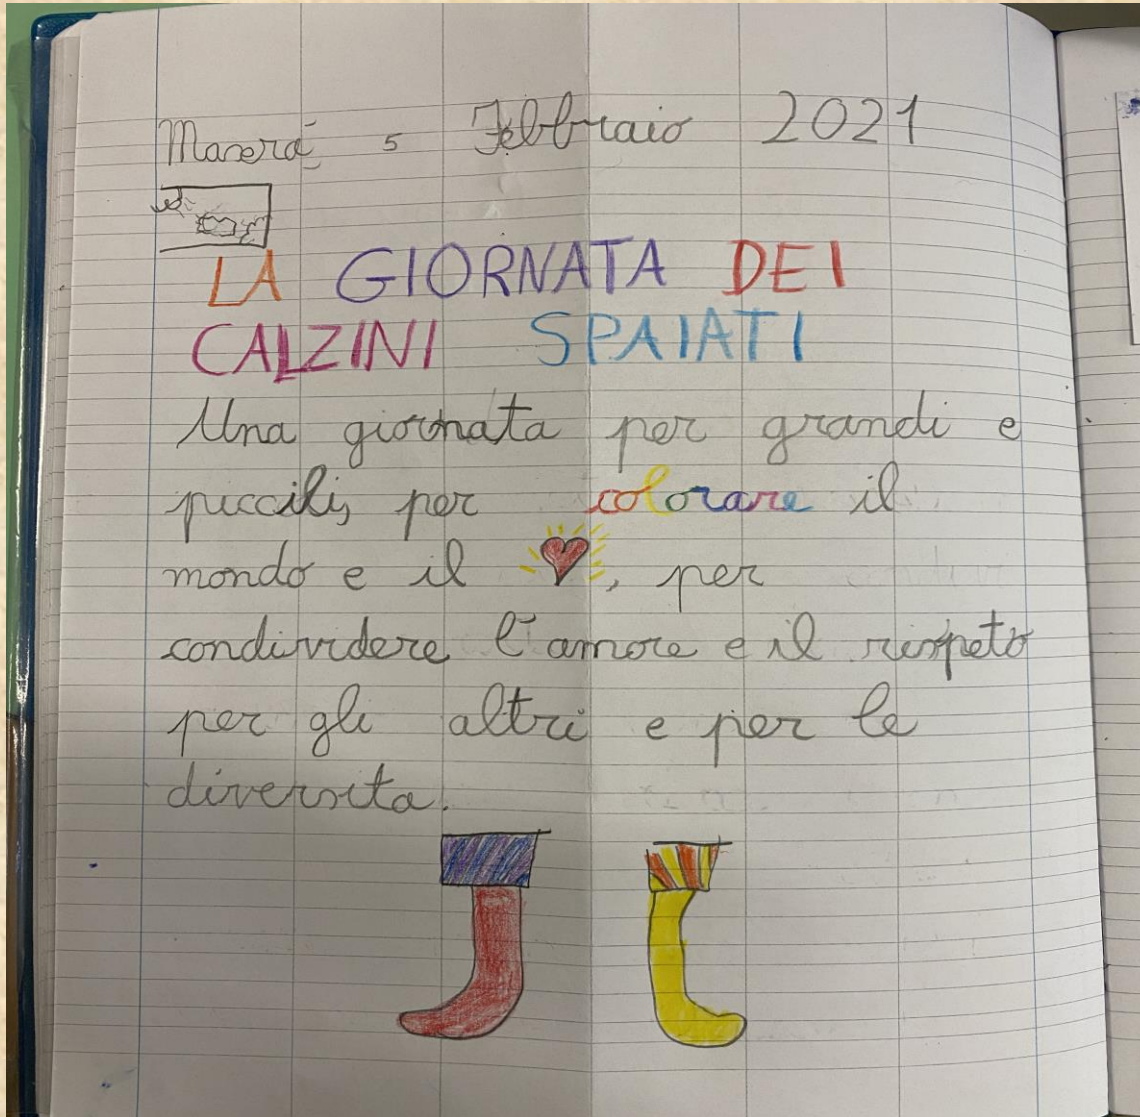 Maserà 5 Febbraio 2021
LA GIORNATA DEI
CALZINI SPAIATI
Una giornata per grandi e
piccili, per colorare il
mondo e il ❤, per
condividere l'amore e il rispeto
per gli altri e per le
diversita.